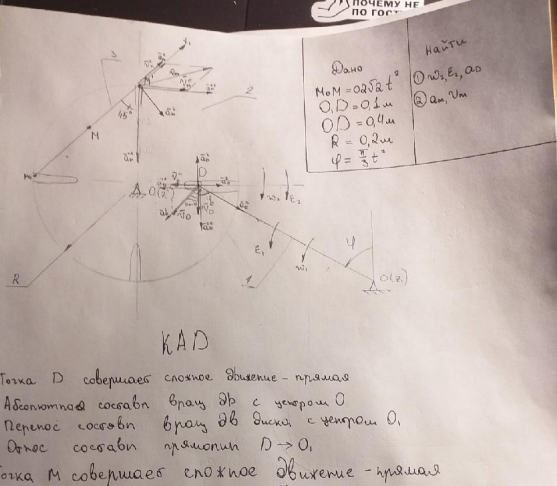 ПОЧЕМУ НЕ
ПО ГОСТ
Дано
MoM = 0,2√2 t²
O₁D = 0,1 м
OD = 0,4 м
R = 0,2 м
φ = π/3 t²
Найти
① ω₂, ε₂, a₀
② aₘ, Vₘ
3
2
45°
M
M₀
D
R
ω₂
ε₂
ε₁
ω₁
φ
1
O(z₁)
КАД
Точка D совершает сложное движение - прямая
Абсолютное составл вращ дв с центром O
Перенос составл вращ дв диска с центром O₁
Относ составл прямолин D → O₁
Точка M совершает сложное движение - прямая